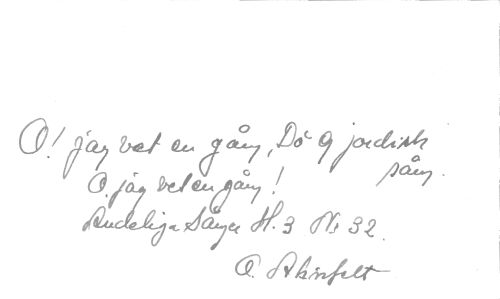 O! jag vet en gång, Då ej jordisk
sång.
O, jag vet en gång!
Andeliga Sånger H. 3 No 32.
O. Ahnfelt